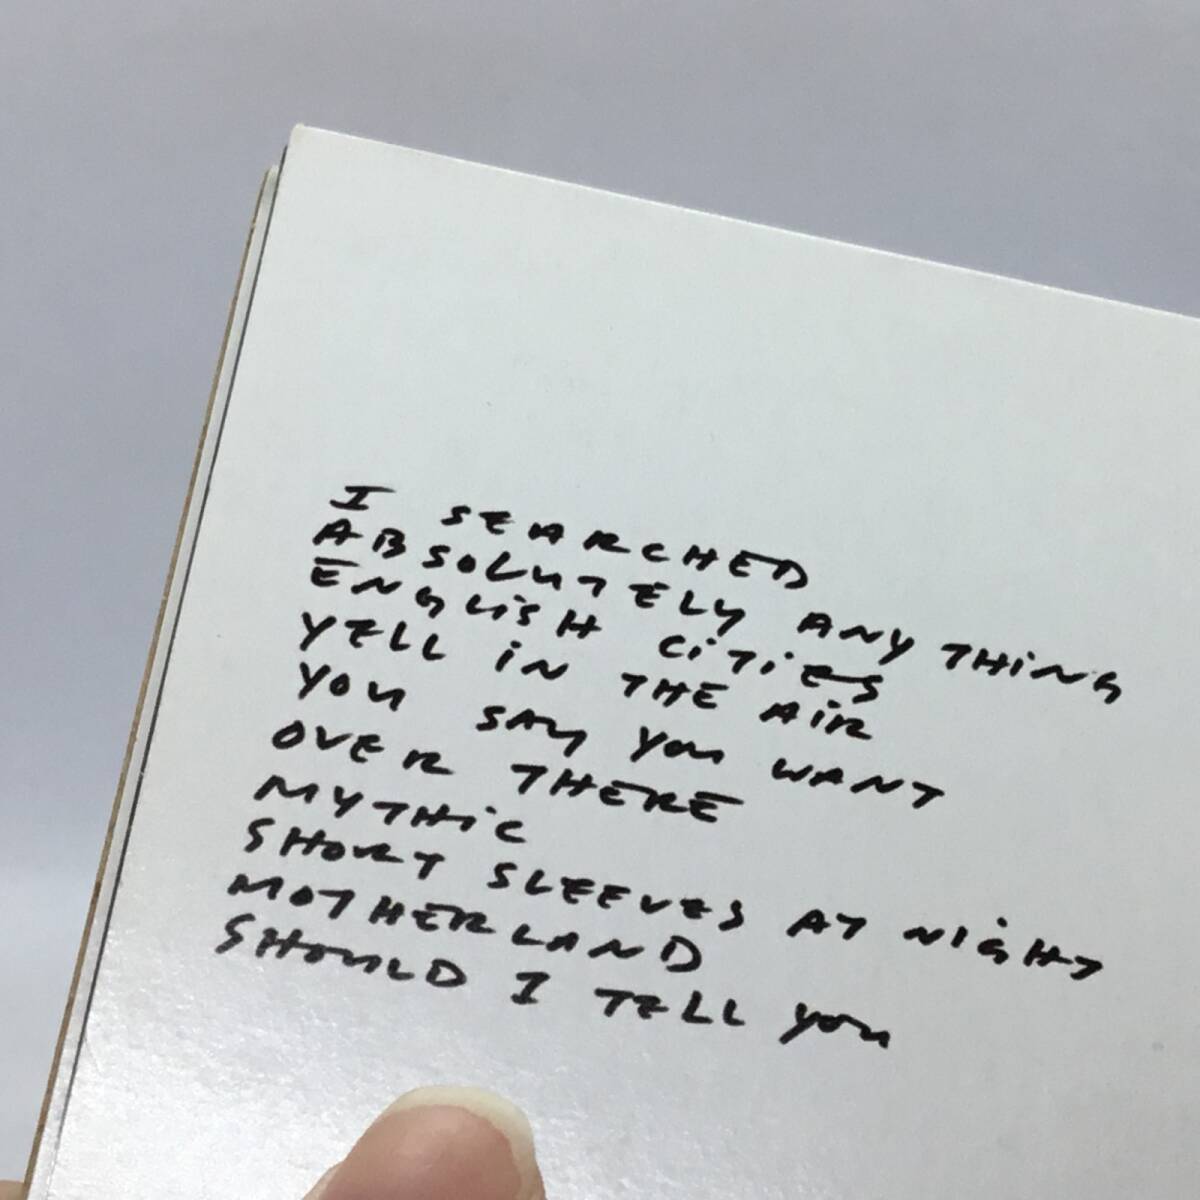 I SEARCHED
ABSOLUTELY ANYTHING
ENGLISH CITIES
YELL IN THE AIR
YOU SAY YOU WANT
OVER THERE
MYTHIC
SHORT SLEEVES AT NIGHT
MOTHERLAND
SHOULD I TELL YOU